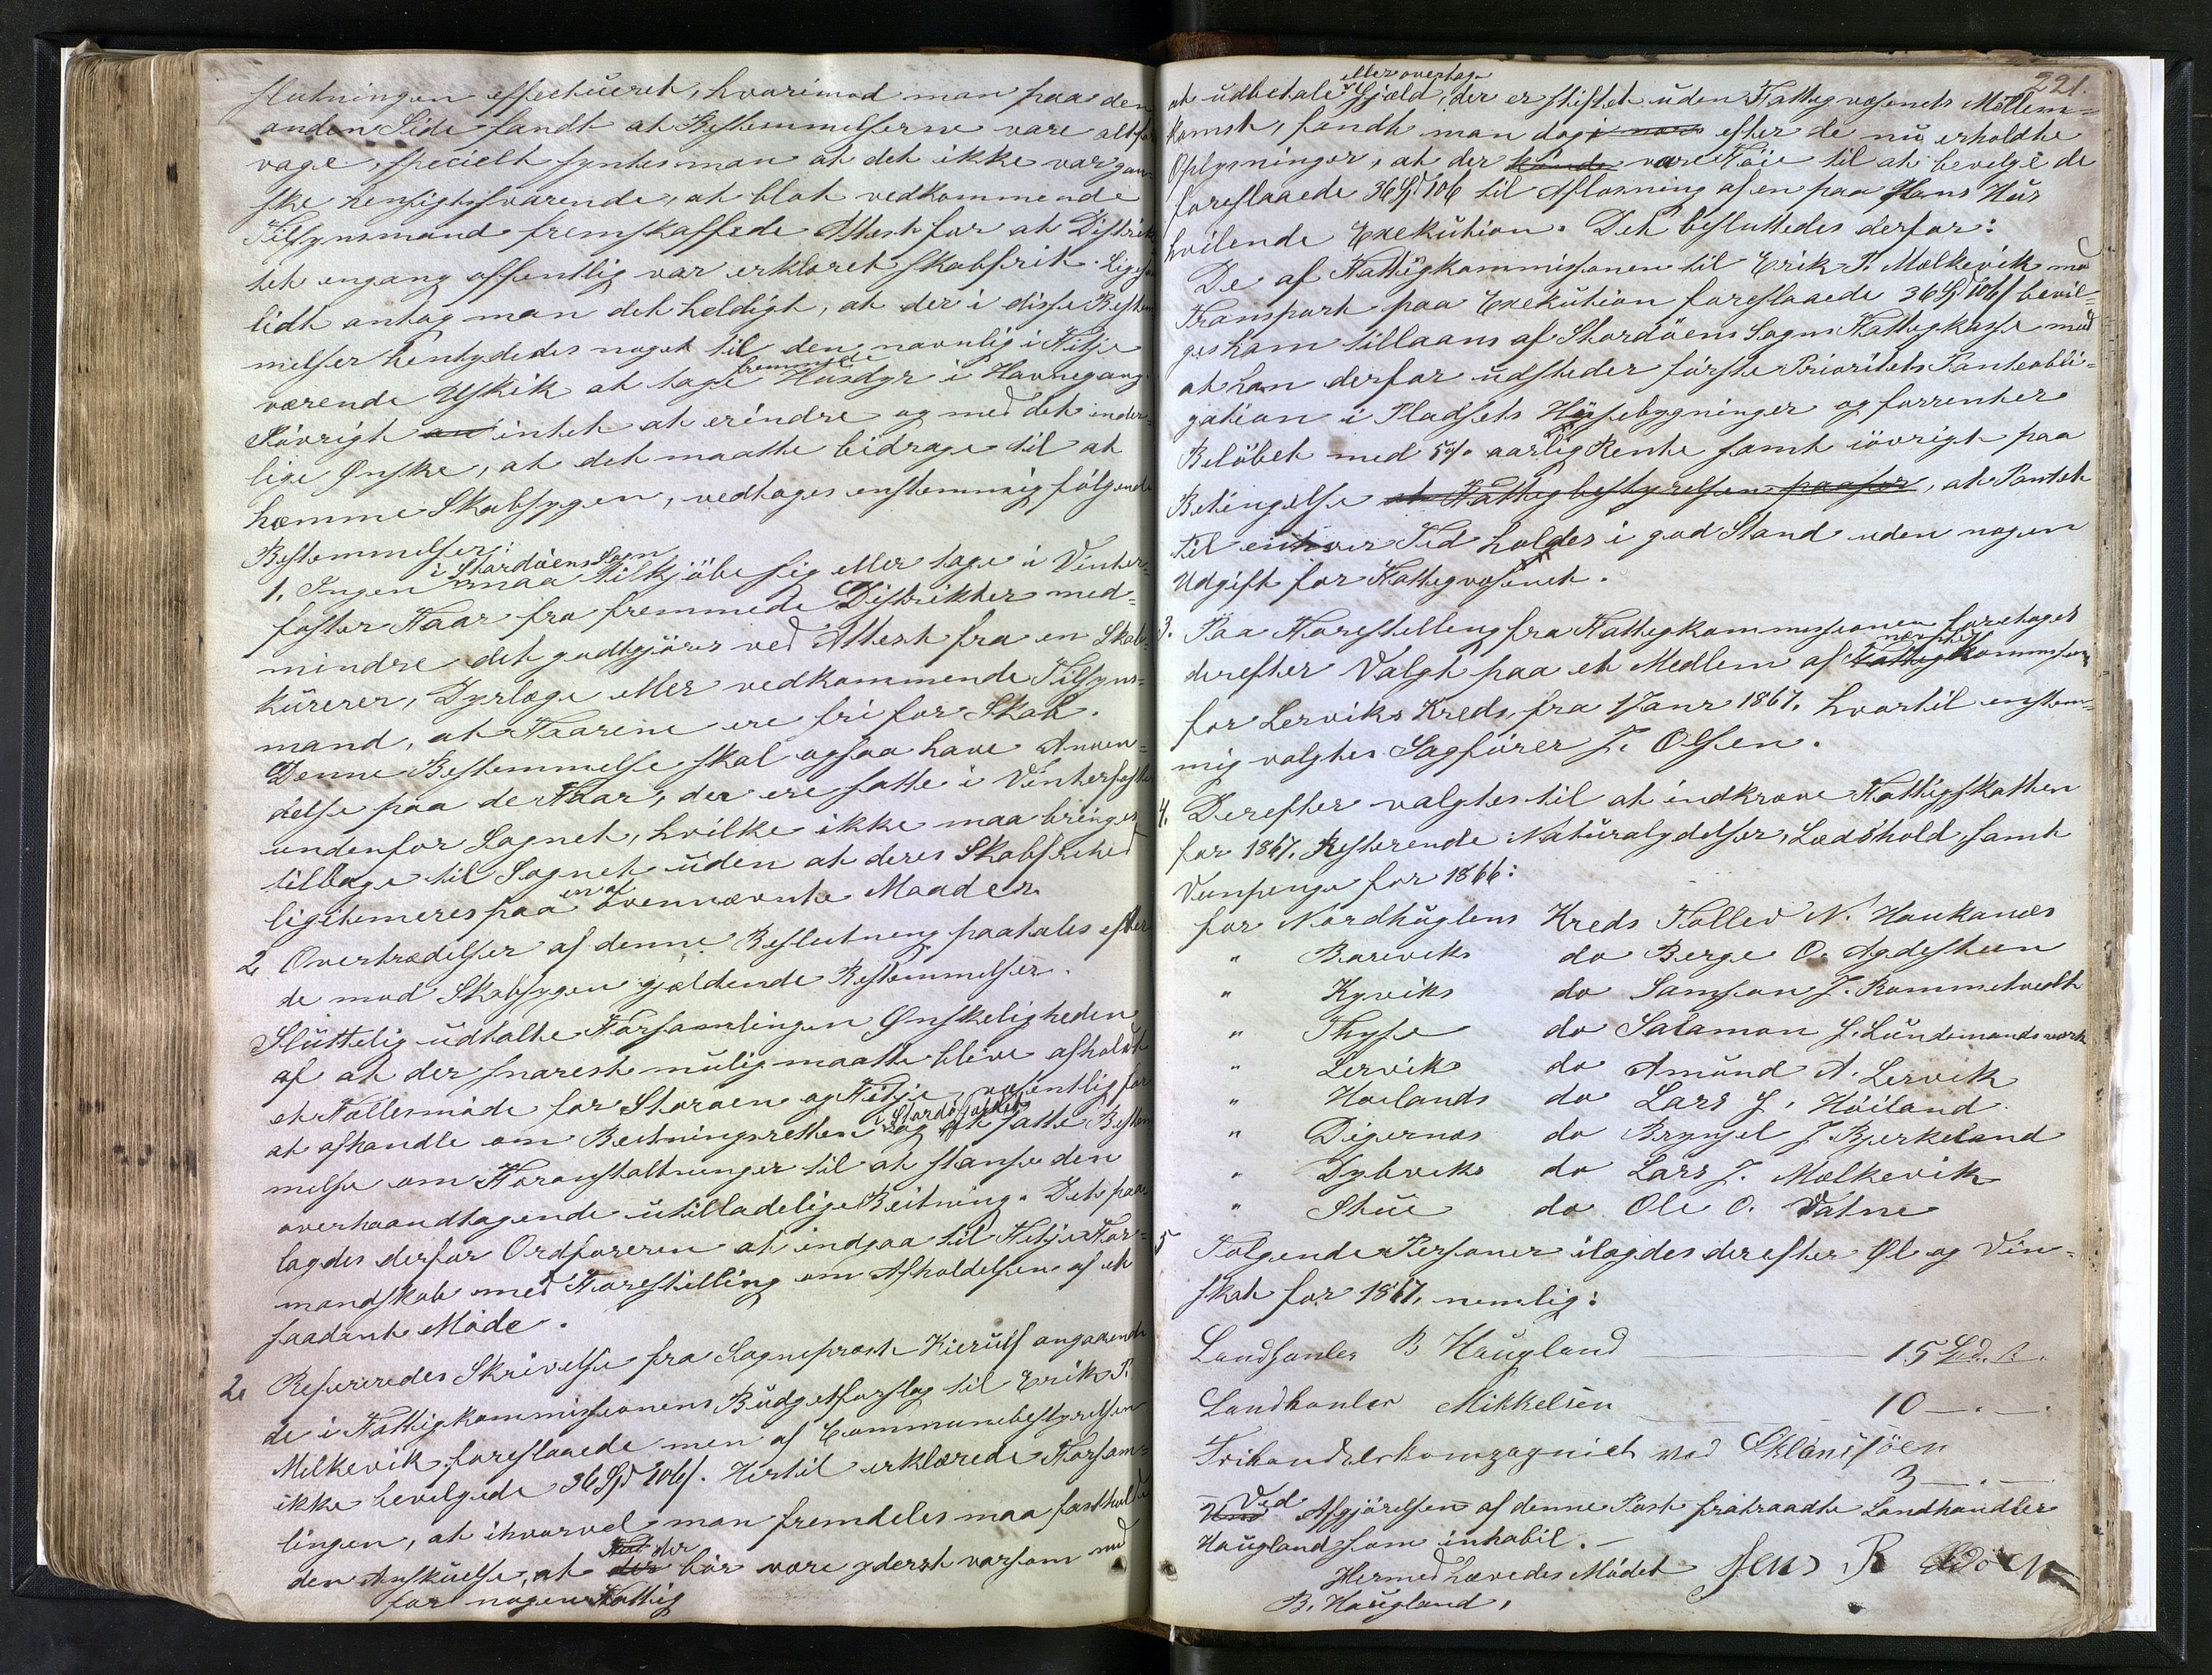 slutningen effectueret, hvorimod man paa den
anden Side fandt at Bestemmelserne vare altfor
vage, specielt syntes man at det ikke var gan-
ske hensigtsvarende, at blot vedkommende
Tilsynsmand fremskaffede Attest for at Distrik
tet engang offentlig var erklæret skabfrit. Ligesaa
lidt antog man det heldigt, at der i disse Bestem
melser hentydedes noget til den navnlig i Fitje
værende Uskik at tage fremmede Husdyr i Havnegang.
Iøvrigt intet at erindre og med det inder-
lige Ønske, at det maatte bidrage til at
hæmme Skabsygen, vedtoges enstemmig følgende
Bestemmelser:
1. Ingen i Stordöens Sogn maa tilkjøbe sig eller tage i Vinter-
foster Faar fra fremmede Distrikter med-
mindre det godtgjøres ved Attest fra en Skab-
kurerer, Dyrlæge eller vedkommende Tilsyns-
mand, at Faarene ere fri for Skab.
Denne Bestemmelse skal ogsaa have Anven-
delse paa de Faar, der ere satte i Vinterfoster
udenfor Sognet, hvilke ikke maa bringes
tilbage til Sognet uden at deres Skabfrihed
ligitemeres paa en af ovennævnte Maader.
2. Overtrædelser af denne Beslutning paatales efter
de mod Skabsygen gjældende Bestemmelser.
Sluttelig udtalte Forsamlingen Ønskeligheden
af at der snarest mulig maatte blive afholdt
et Fællesmøde for Storøen og Fitje, væsentlig for
at afhandle om Beitningsretten og at fatte Bestem
melse om Foranstaltninger til at stanse den
overhaandtagende utilladelige Beitning. Det paa-
lagdes derfor Ordføreren at indgaa til Fitje For-
mandskab med Forestilling om Afholdelsen af et
saadant Møde.
2. Refereredes Skrivelse fra Sognepræst Kierulf angaaende
de i Fattigkommissionens Budgetforslag til Erik P.
Milkevik foreslaaede men af Communebestyrelsen
ikke bevilgede 36 Spd 106 s. Hertil erklærede Forsam-
lingen, at ihvorvel man fremdeles maa fastholde
den Anskuelse, at der bør være yderst varsom med
for nogen Fattig
221.
at udbetale eller overtage Gjæld, der er stiftet uden Fattigvæsenets Mellem-
komst, fandt man dog efter de nu erholdte
Oplysninger, at der var Føie til at bevilge de
foreslaaede 36 Spd 106 til Afløsning af en paa Hans Hus
hvilende Exekution. Det besluttedes derfor:
De af Fattigkommissionen til Erik P. Mælkevik mod
Transport paa Exekution foreslaaede 36 Spd 106 s bevil-
ges ham tillaans af Stordöens Sogns Fattigkasse mod
at han derfor udsteder første Prioritets Panteobli-
gation i Pladsets Husebygninger og forrenter
Beløbet med 5% aarlig Rente samt iøvrigt paa
Betingelse at Fattigbestyrelsen paaser, at Pantet
til enhver Tid holdes i god Stand uden nogen
Udgift for Fattigvæsenet.
3. Paa Forestilling fra Fattigkommissionen foretoges
derefter Valgt paa et Medlem af nævnte Kommission
for Lerviks Kreds fra 1 Janr 1867. hvortil enstem-
mig valgtes Sagfører J. Olsen.
4. Derefter valgtes til at indkræve Fattigskatten
for 1867. Resterende Naturalydelser, Lædshold samt
Vinpenge for 1866:
for Nordhuglens Kreds Tollev N. Haukanæs
" Bareviks do Berge O. Agdesteen
" Kyviks do Samson J. Rommetvedt
" Thyse do Salamon J. Lundemandsværk
" Lerviks do Amund A. Lervik
" Hoilands do Lars J. Høiland
" Digernæs do Brynjel J. Bjerkeland
" Dybviks do Lars J. Mælkevik
" Stue do Ole O. Vatne
5 Følgende Personer ilagdes derefter Øl og Vin-
skat for 1867, nemlig:
Landhanler B Haugland 15 Spd. s.
Landhanler Mikkelsen 10 — . — .
Frihandelskompagniet ved
3 — . —
Ved Afgjørelsen af denne Post fratraadte Landhandler
Haugland som inhabil. —
Hermed hævedes Mødet Jens R
B. Haugland.